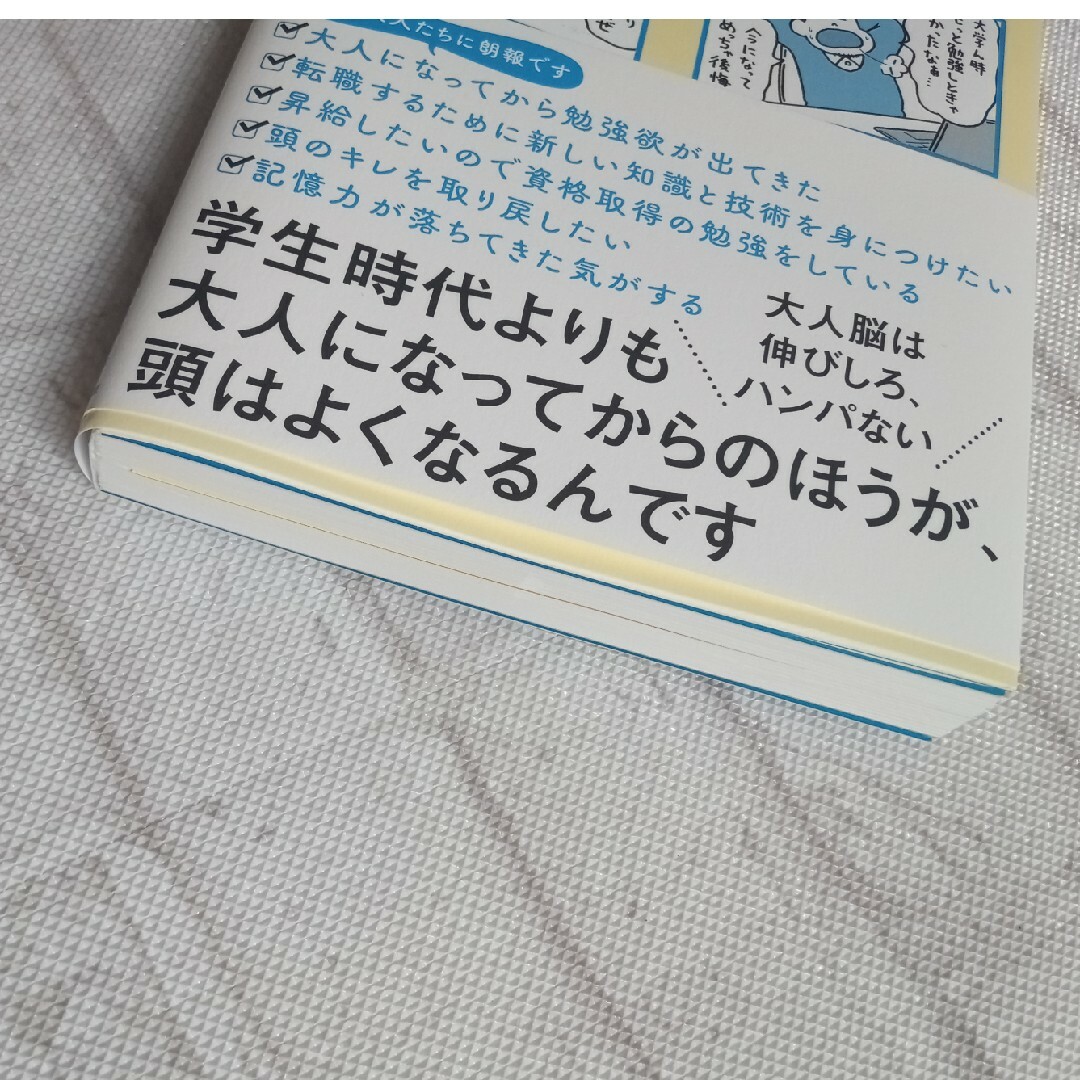 人たちに朗報です
大人になってから勉強欲が出てきた
転職するために新しい知識と技術を身につけたい
昇給したいので資格取得の勉強をしている
頭のキレを取り戻したい
記憶力が落ちてきた気がする
大人脳は
伸びしろ、
ハンパない
学生時代よりも
大人になってからのほうが、
頭はよくなるんです
っと勉強しときゃ
かったなぁ…
今になって
めっちゃ後悔